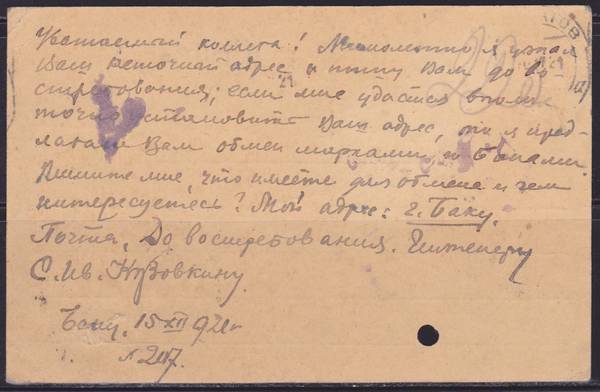 Уважаемый коллега! Мимолетно я узнал
Ваш неточный адрес и пишу Вам до во
стребования; если мне удастся вполне
точно установить Ваш адрес, то я пред-
лагаю Вам обмен марками и бонами.
Пишите мне, что имеете для обмена и чем
интересуетесь? Мой адрес: г. Баку.
Почта, До востребования. Инженеру
С. Ив.
Баку, 15 XII 921 г
№ 217.